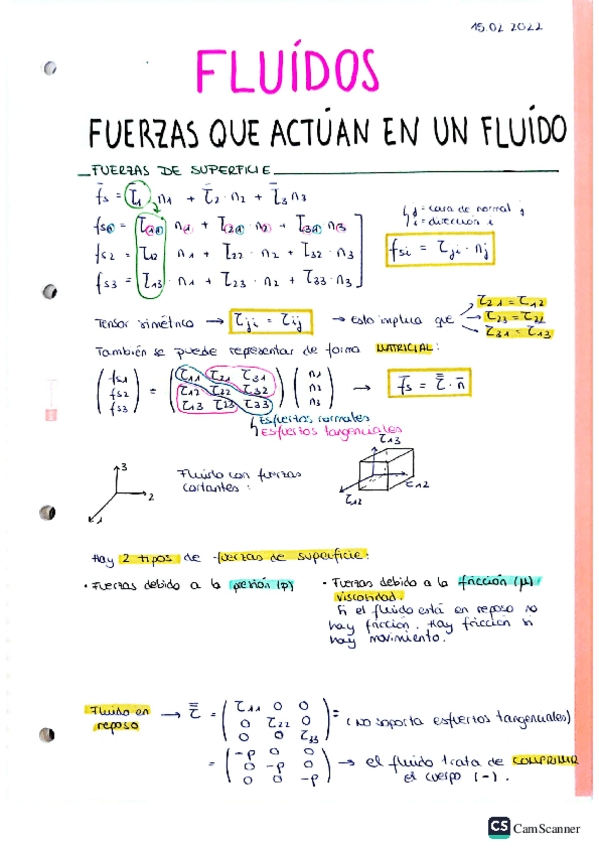 15.02 2022
FLUÍDOS
FUERZAS QUE ACTÚAN EN UN FLUÍDO
FUERZAS DE SUPERFICIE
f̄s = τ̄1 · n1 + τ̄2 · n2 + τ̄3 n3
fs1 = τ11 n1 + τ21 · n2 + τ31 · n3
j = cara de normal j
i = dirección i
fs2 = τ12 n1 + τ22 · n2 + τ32 · n3
fsi = τji · nj
fs3 = τ13 · n1 + τ23 · n2 + τ33 · n3
Tensor simétrico → τji = τij → Esto implica que
τ21 = τ12
τ23 = τ22
τ31 = τ13
También se puede representar de forma MATRICIAL:
fs1 τ11 τ21 τ31 n1
fs2 = τ12 τ22 τ32 n2 → f̄s = τ̿ · n̄
fs3 τ13 τ23 τ33 n3
Esfuertos normales
Esfuertos tangenciales
τ13
3
2
1
Fluido con fuerzas
cortantes :
τ12
τ12
Hay 2 tipos de fuerzas de superficie:
• Fuerzas debido a la presión (p)
• Fuerzas debido a la fricción (μ)
viscosidad.
Si el fluido está en reposo no
hay fricción. Hay fricción si
hay movimiento.
Fluido en
reposo
→ τ̿ = τ11 0 0
0 τ22 0 = (no soporta esfuertos tangenciales)
0 0 τ33
= -p 0 0
0 -p 0 → el fluido trata de COMPRIMIR
0 0 -p el cuerpo (-).
CS CamScanner